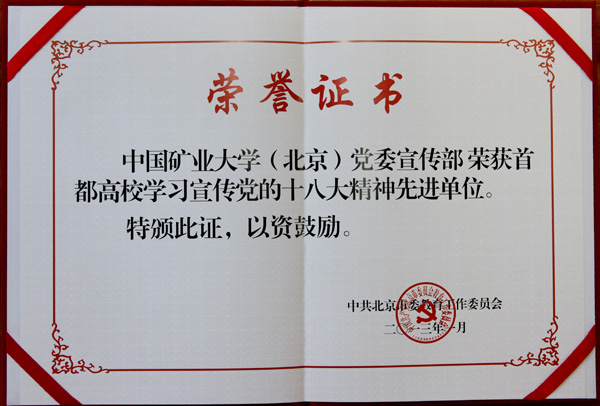 荣誉证书
中国矿业大学（北京）党委宣传部 荣获首
都高校学习宣传党的十八大精神先进单位。
特颁此证，以资鼓励。
中共北京市委教育工作委员会
二〇一三年一月